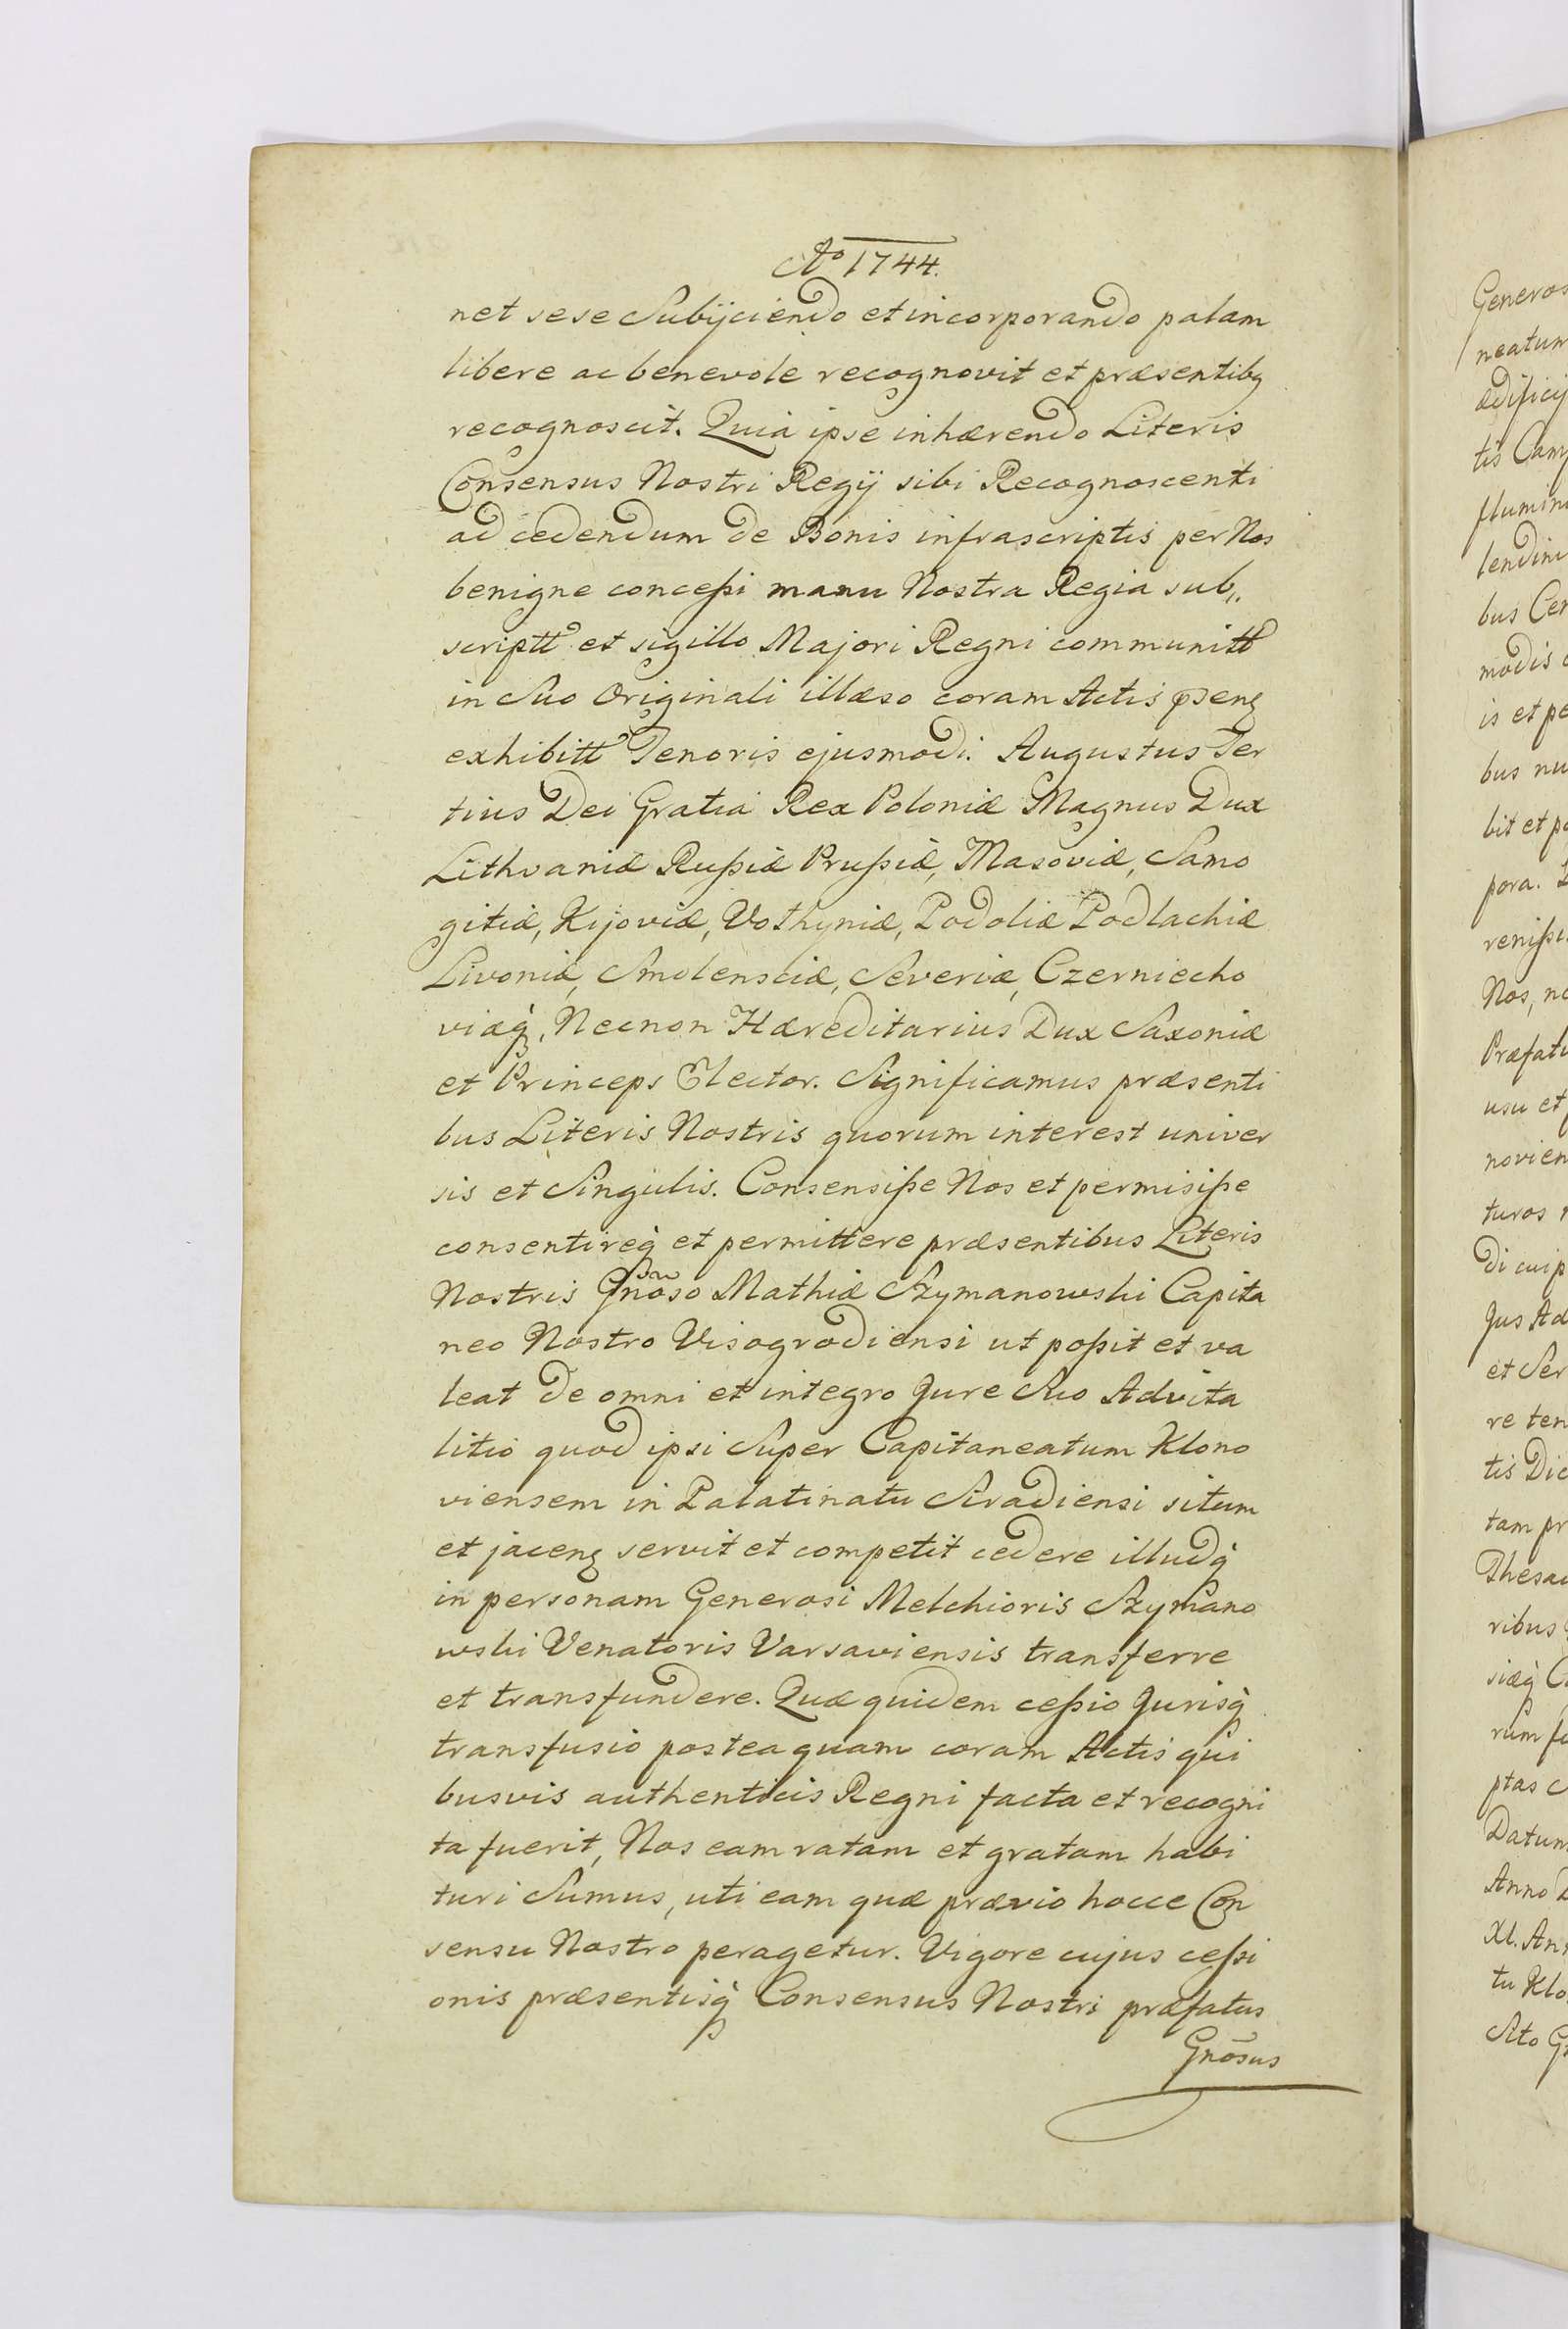 Aº 1744.
net sese Subijciendo et incorporando palam
libere ac benevole recognovit et præsentibꝫ
recognoscit. Quia ipse inhærendo Literis
Consensus Nostri Regij sibi Recognoscenti
ad cedendum de Bonis infrascriptis per Nos
benigne conceßi manu Nostra Regia sub„
scriptt et sigillo Majori Regni communitt
in Suo Originali illæso coram Actis
exhibitt Tenoris ejusmodi. Augustus Ter
tius Dei Gratia Rex Poloniæ Magnus Dux
Lithvaniæ Rußiæ Prußiæ, Masoviæ, Samo
gitiæ, Kijoviæ, Volhyniæ, Podoliæ Podlachiæ
Livoniæ, Smolensciæ, Severiæ, Czerniecho
viæq̀, Necnon Hæreditarius Dux Saxoniæ
et Princeps Elector. Significamus præsenti
bus Literis Nostris quorum interest univer
sis et Singulis. Consensiße Nos et permisiße
consentireq̀ et permittere præsentibus Literis
Nostris Gnõso Mathiæ Szymanowski Capita
neo Nostro Visogrodiensi ut poßit et va
leat de omni et integro Jure Suo Advita
litio quod ipsi Super Capitaneatum Klono
viensem in Palatinatu Siradiensi situm
et jacenꝫ servit et competit cedere illudq̀
in personam Generosi Melchioris Szymano
wski Venatoris Varsaviensis transferre
et transfundere. Quæ quidem ceßio Jurisq̀
transfusio posteaquam coram Actis qui
busvis authenticis Regni facta et recogni
ta fuerit, Nos eam ratam et gratam habi
turi Sumus, uti eam quæ prævio hocce Con
sensu Nostro peragetur. Vigore cujus ceßi
onis præsentisq̀ Consensus Nostri præfatus
Gnõsus
Generos
neatum
ædificij
tis Camp
flumini
lendini
bus Cen
modis
is et pe
bus nu
bit et po
pora.
renißi
Nos, no
Præfatu
usu et
novien
turos
di cuip
Jus Ad
et Ser
re ten
tis Dic
tam pr
Thesau
ribus
siæq̀
rum
ptas
Datum
Anno
XL. Ann
tu Klo
Sito